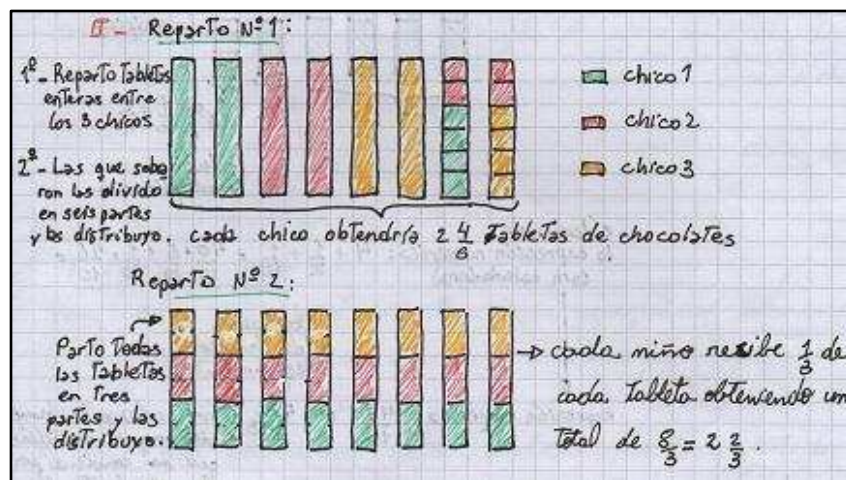 II- Reparto Nº 1:
1º- Reparto Tabletas
enteras entre
los 3 chicos
2º- Las que soba
ron las divido
en seis partes
y las distribuyo.
chico 1
chico 2
chico 3
cada chico obtendría 2 4/6 Tabletas de chocolates
Reparto Nº 2:
Parto Todas
las Tabletas
en Tres
partes y las
distribuyo.
cada niño recibe 1/3 de
cada Tableta obteniendo un
Total de 8/3 = 2 2/3.